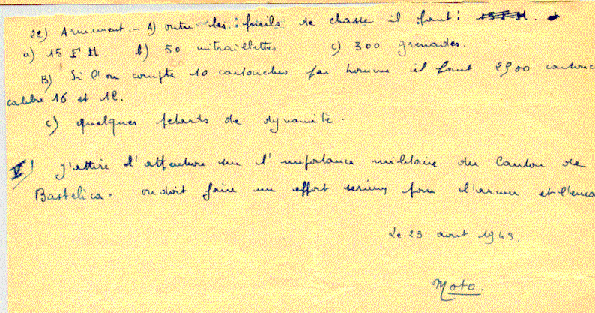 2e) Armement - A) outre les fusils de chasse il faut :
a) 15 F M b) 50 mitraillettes c) 300 grenades.
B) Si l'on compte 10 cartouches par homme il faut 2900 cartouc
calibre 16 et 12.
C) quelques pétards de dynamite.
V) J'attire l'attention sur l'importance militaire du Canton de
Bastelica. on doit faire un effort sérieux pour l'armer et l'enca
le 23 aout 1943.
Moto.